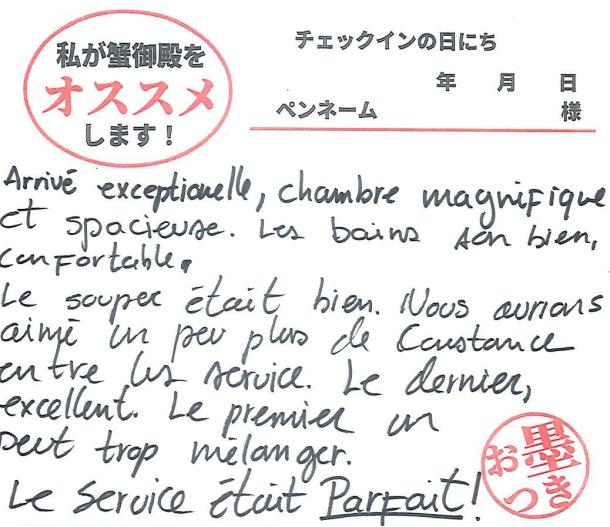 私が蟹御殿を
オススメ
します！
チェックインの日にち
年 月 日
ペンネーム 様
Arrivé exceptionelle, chambre magnifique
et spacieuse. Les bains son bien,
confortable.
Le souper était bien. Nous aurions
aimé un peu plus de Constance
entre les service. Le dernier,
excellent. Le premier un
peut trop mélanger.
Le service était Parfait!
お墨
つき